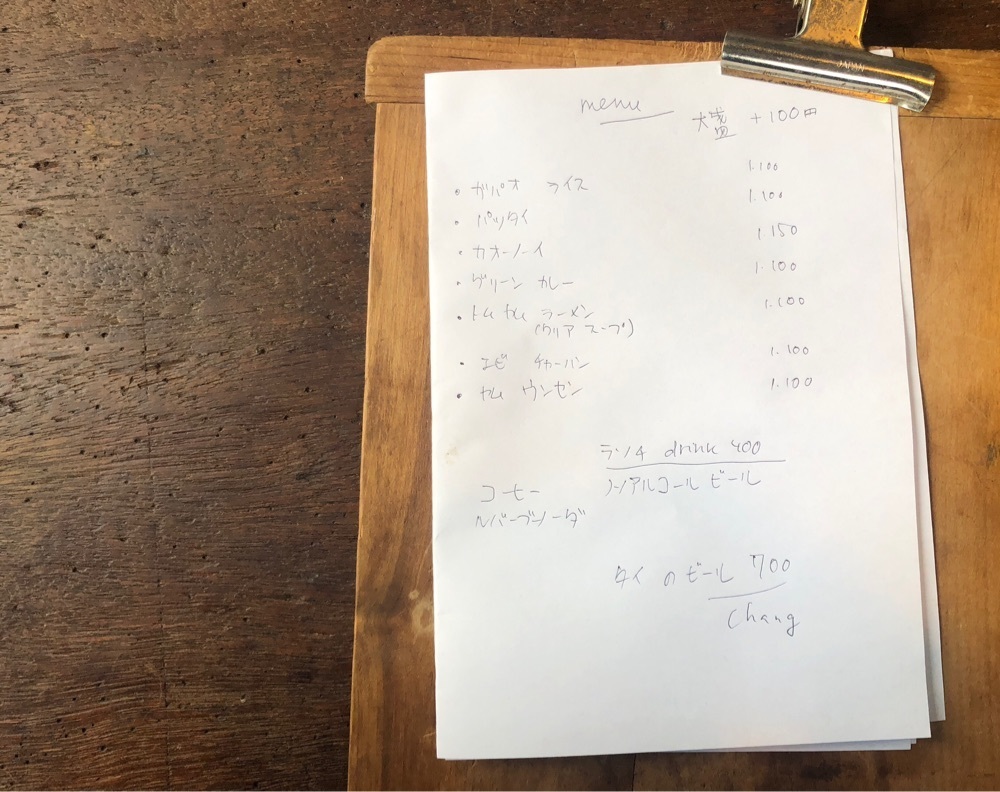 JAPAN
menu
大盛 +100円
・ガパオ ライス 1.100
・パッタイ 1.100
・カオソーイ 1.150
・グリーン カレー 1.100
・トムヤム ラーメン 1.100
(クリア スープ)
・エビ チャーハン 1.100
・ヤム ウンセン 1.100
ランチ drink 400
コーヒー ノンアルコール ビール
ルバーブソーダ
タイ の ビール 700
Chang